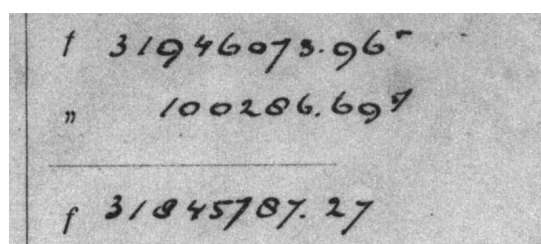 f 31946073.96⁵
„ 100286.69⁷
f 31845787.27